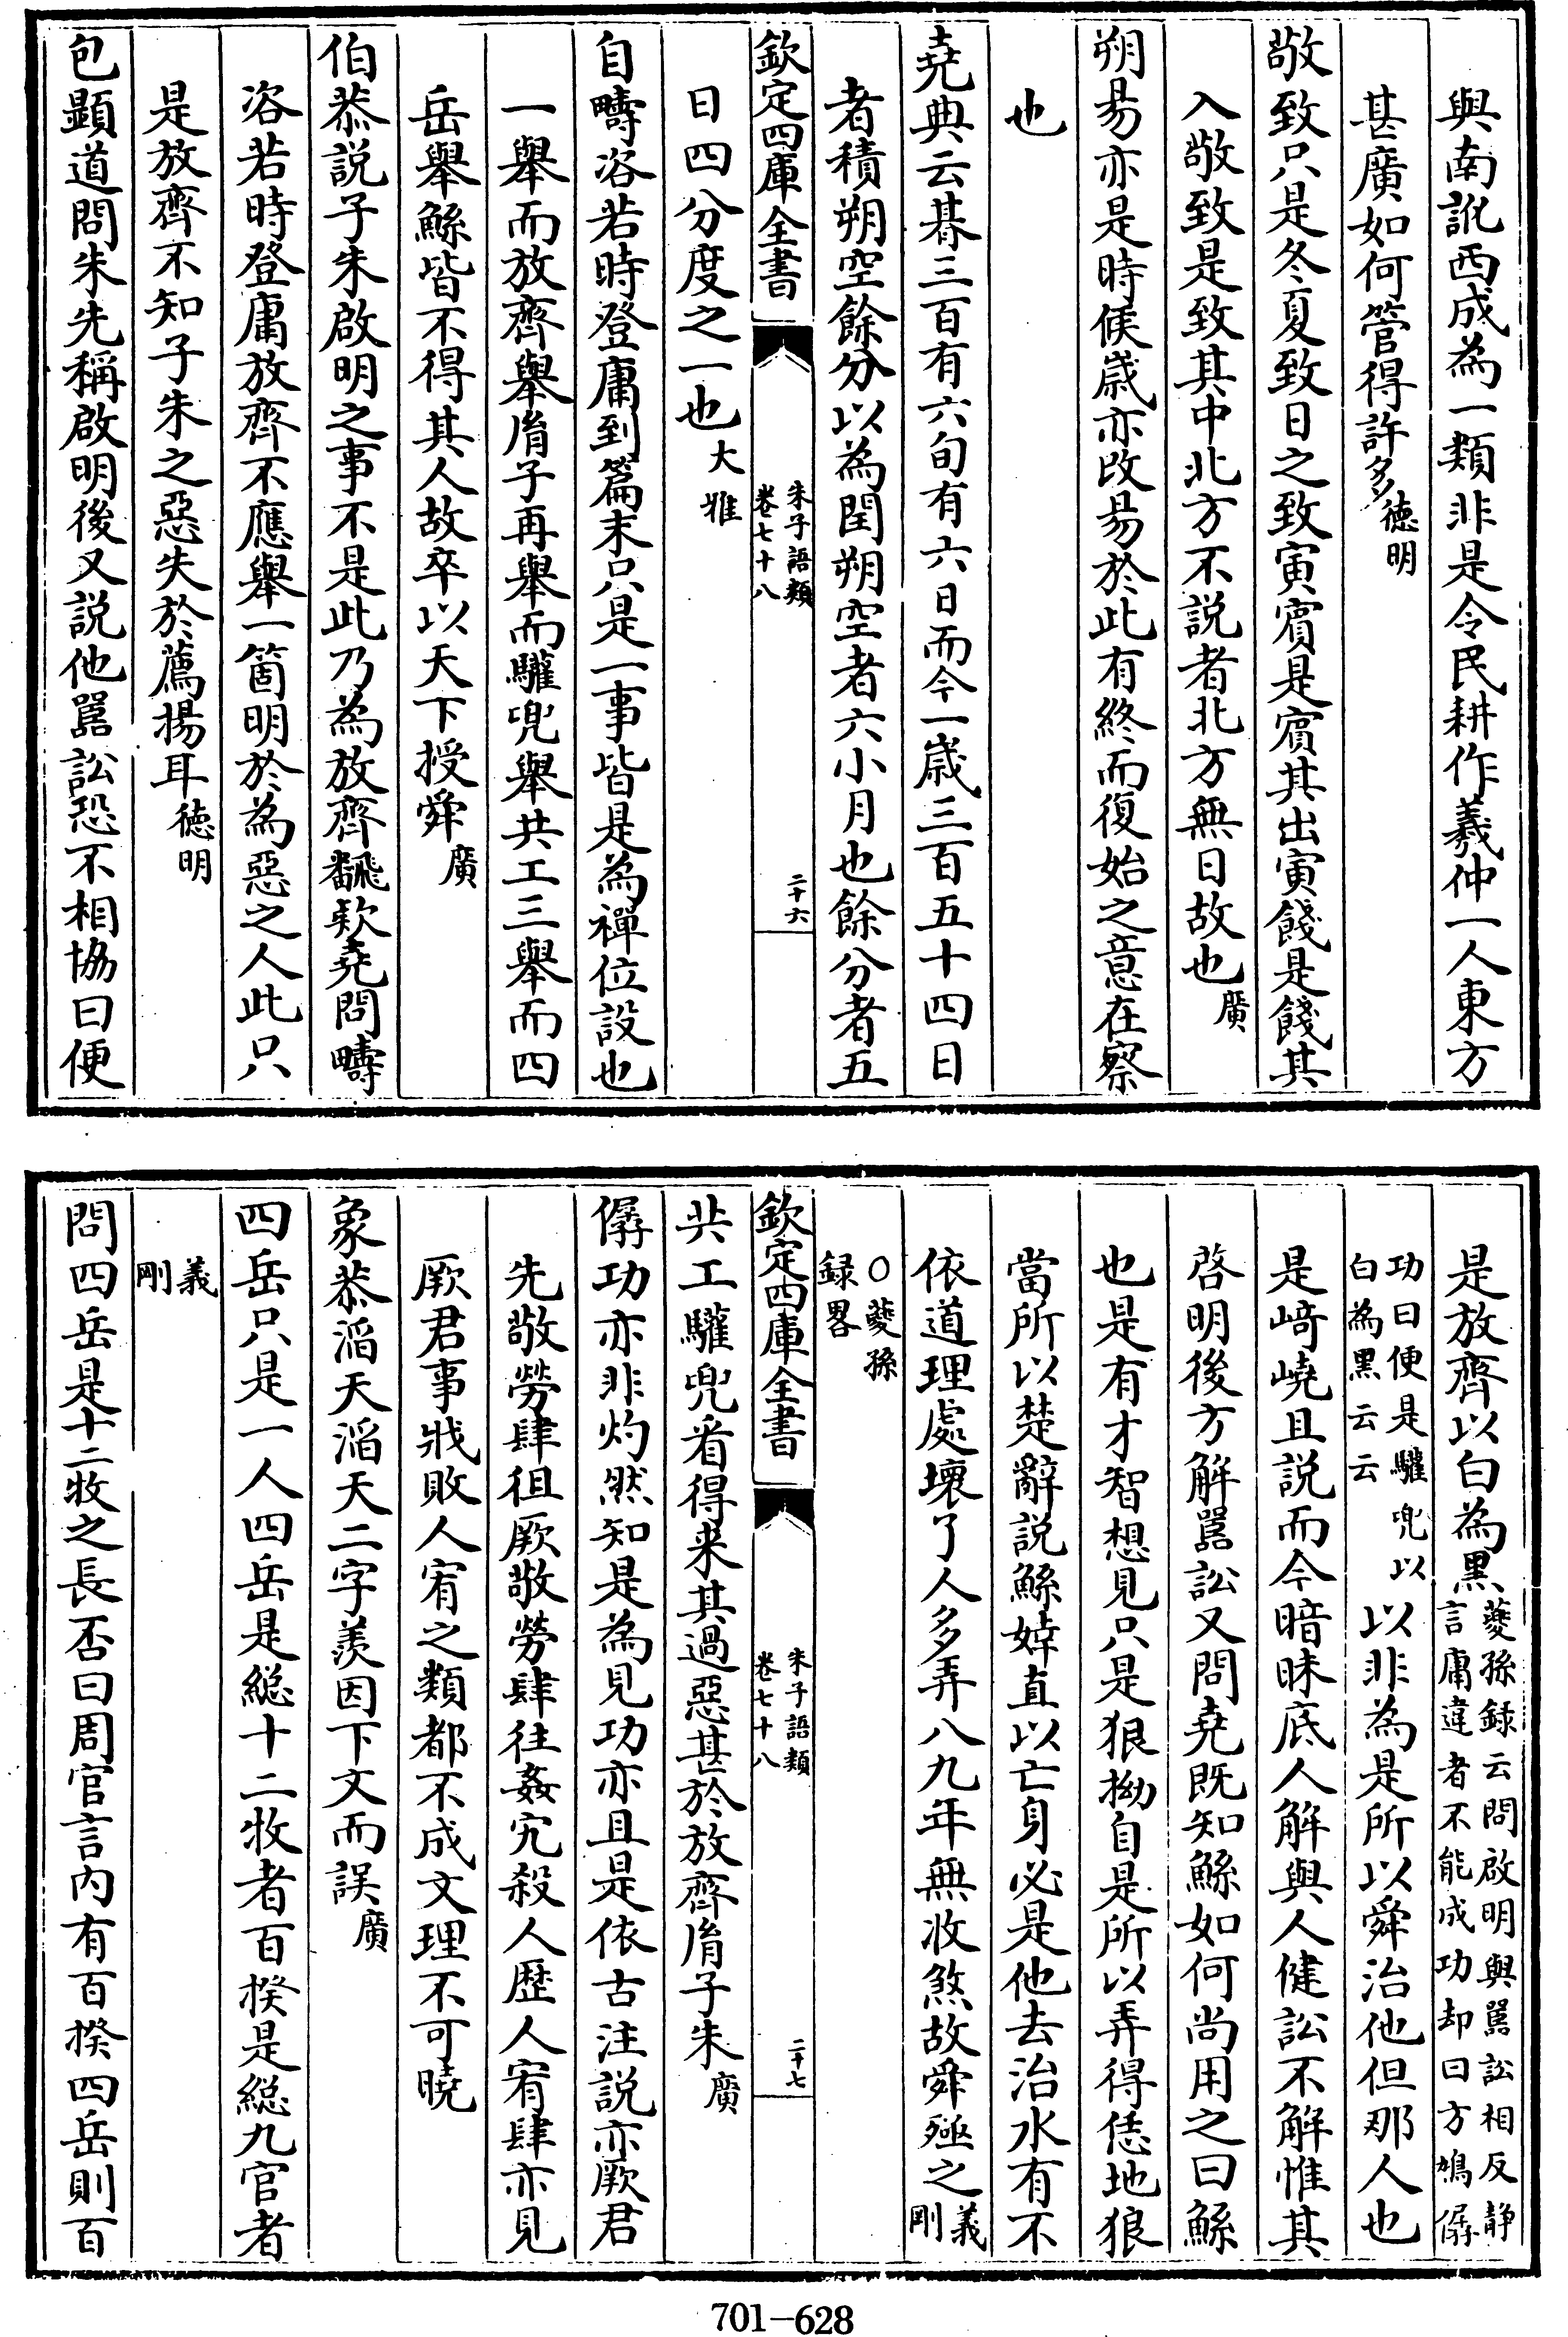 與南訛西成為一類非是令民耕作羲仲一人東方
甚廣如何管得許多德明
敬致只是冬夏致日之致寅賔是賔其出寅餞是餞其
入敬致是致其中北方不説者北方無日故也廣
朔易亦是時候歲亦改易於此有終而復始之意在察
也
堯典云朞三百有六旬有六日而今一歲三百五十四日
者積朔空餘分以為閏朔空者六小月也餘分者五
欽定四庫全書
朱子語類
卷七十八
二十六
日四分度之一也大雅
自疇咨若時登庸到篇末只是一事皆是為禪位設也
一舉而放齊舉胤子再舉而驩兜舉共工三舉而四
岳舉鯀皆不得其人故卒以天下授舜廣
伯恭説子朱啟明之事不是此乃為放齊翻欵堯問疇
咨若時登庸放齊不應舉一箇明於為惡之人此只
是放齊不知子朱之惡失於薦揚耳德明
包顯道問朱先稱啟明後又説他嚚訟恐不相協曰便
是放齊以白為黑夔孫錄云問啟明與嚚訟相反静
言庸違者不能成功却曰方鳩僝
功曰便是驩兜以
白為黒云云
以非為是所以舜治他但那人也
是﨑嶢且説而今暗昧底人解與人健訟不解惟其
啓明後方解嚚訟又問堯既知鯀如何尚用之曰鯀
也是有才智想見只是狠拗自是所以弄得恁地狼
當所以楚辭説鯀婞直以亡身必是他去治水有不
依道理處壞了人多弄八九年無收煞故舜殛之義剛
○夔孫
録畧
欽定四庫全書
朱子語類
卷七十八
二十七
共工驩兜看得来其過惡甚於放齊胤子朱廣
僝功亦非灼然知是為見功亦且是依古注説亦厥君
先敬勞肆徂厥敬勞肆往姦宄殺人歴人宥肆亦見
厥君事戕敗人宥之類都不成文理不可曉
象恭滔天滔天二字羨因下文而誤廣
四岳只是一人四岳是総十二牧者百揆是総九官者
義剛
問四岳是十二牧之長否曰周官言内有百揆四岳則百
701-628